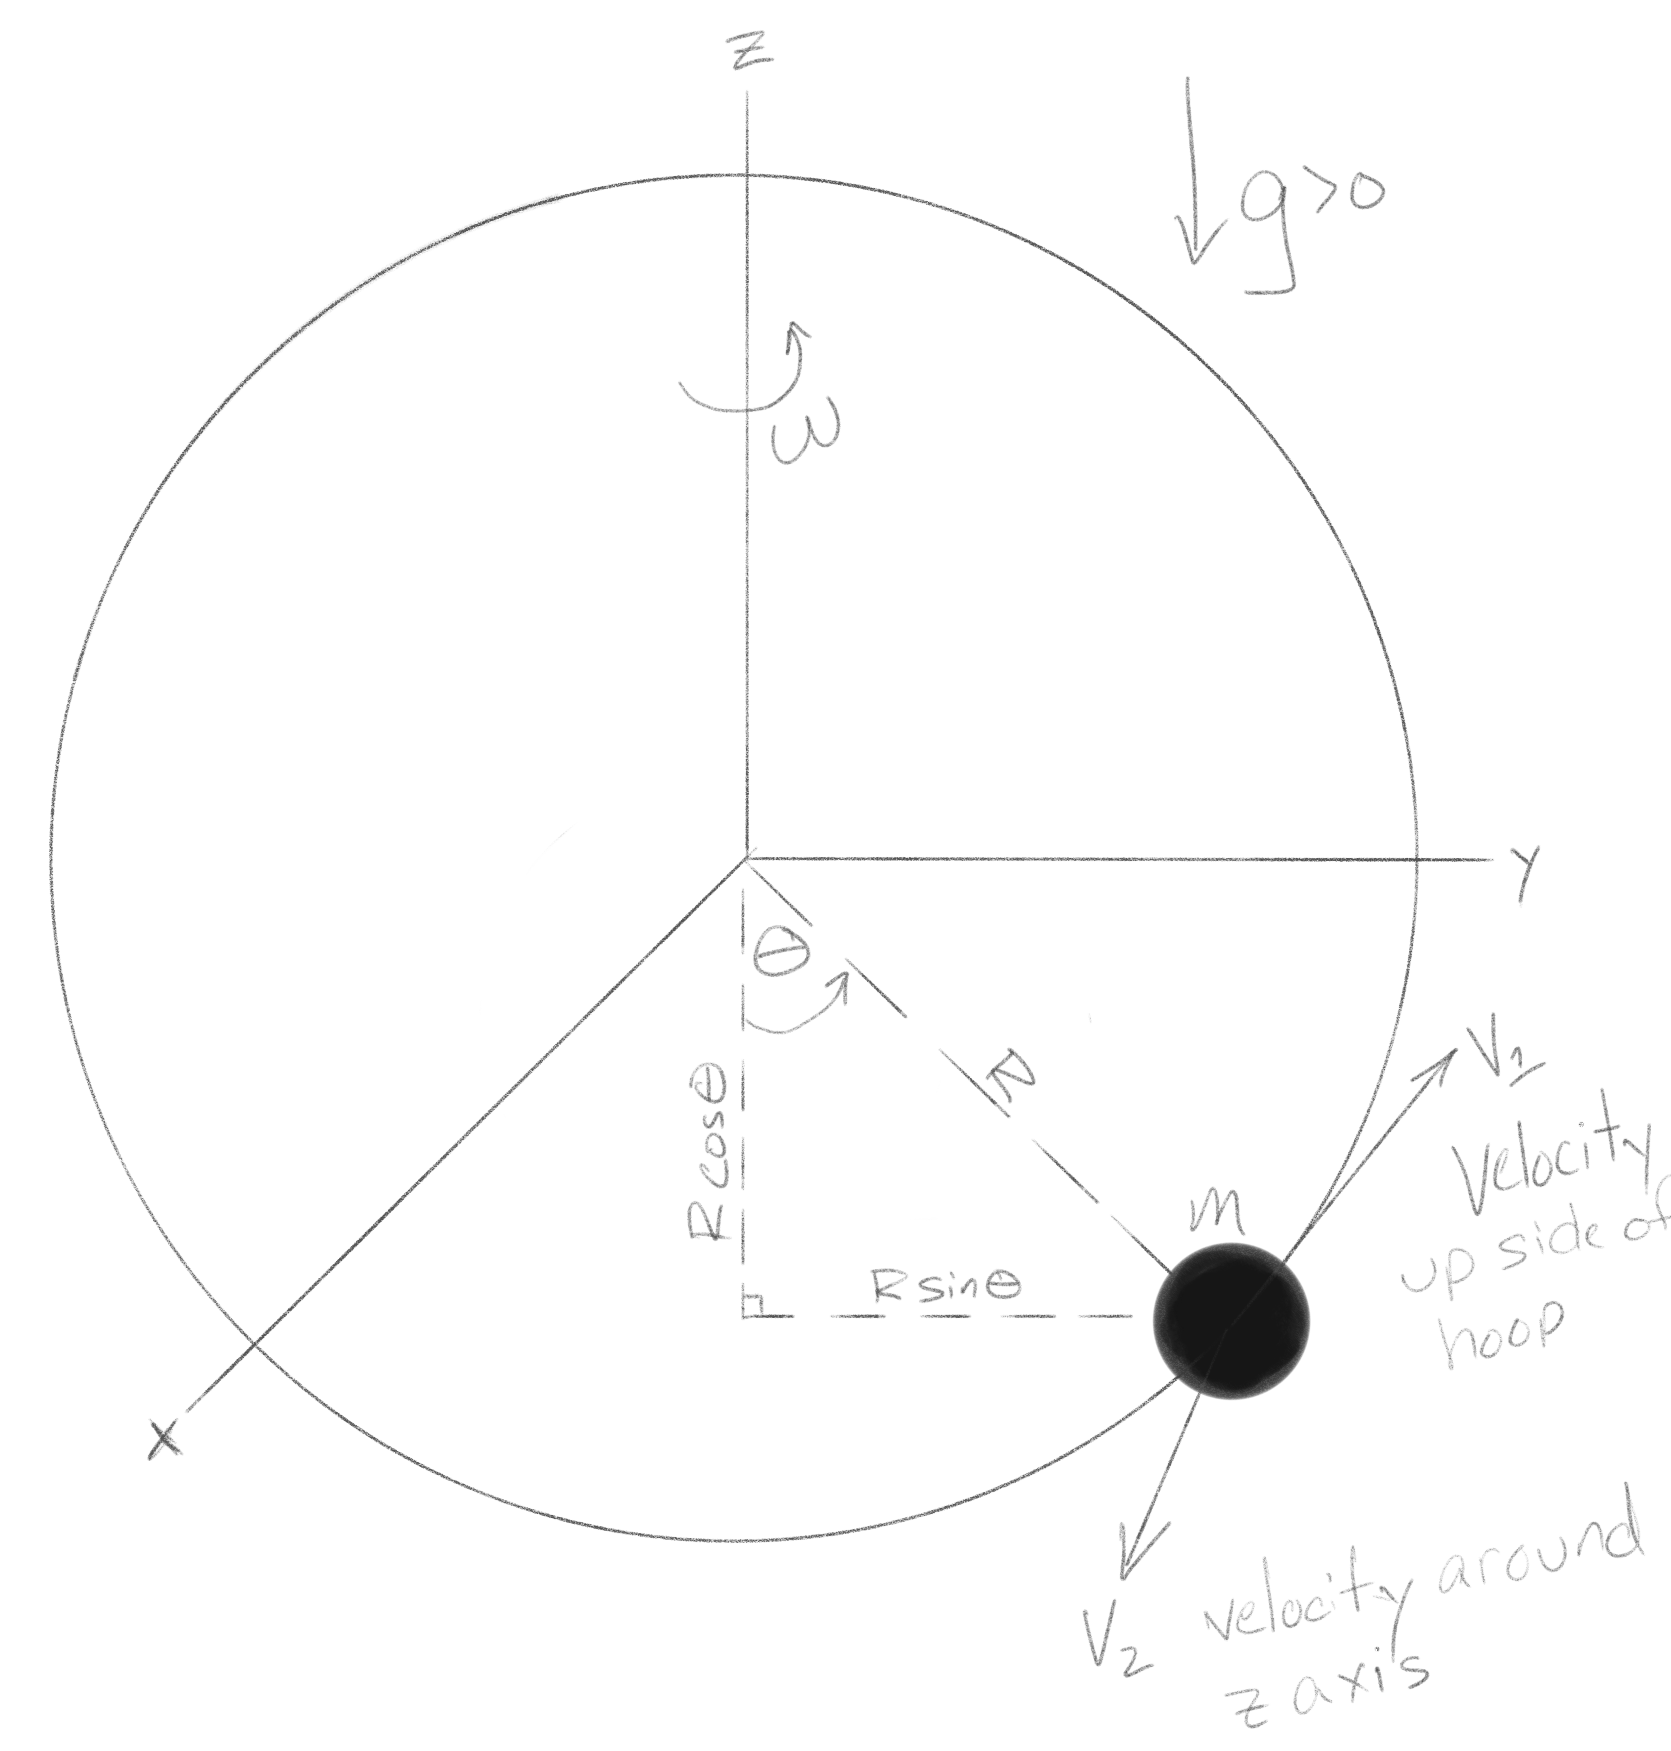 z
g>0
ω
y
θ
R
R cosθ
V1
Velocity
up side of
hoop
m
R sinθ
x
V2 velocity around
z axis